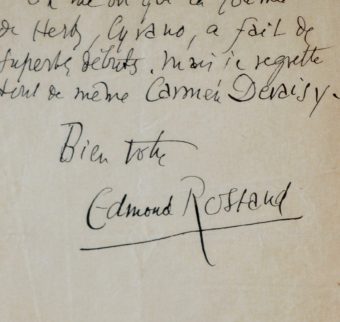 On me dit que la
de Hertz, Cyrano, a fait de
superbes débuts. Mais je regrette
tout de même Carmen Deraisy.
Bien votre
Edmond Rostand